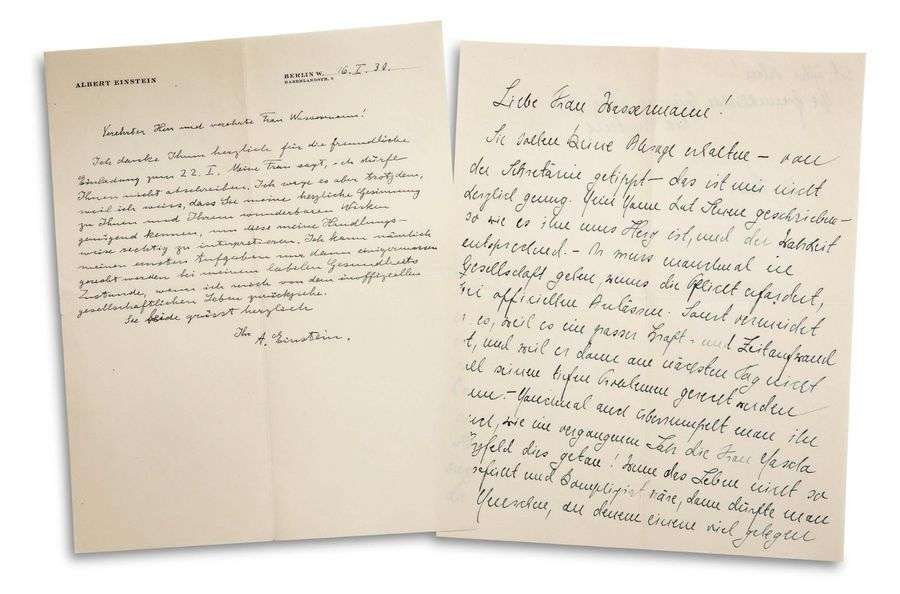 ALBERT EINSTEIN
BERLIN W. 16. I. 30.
HABERLANDSTR. 5
Verehrter Herr und verehrte Frau Wassermann!
Ich danke Ihnen herzlich für die freundliche
Einladung zum 22. I. Meine Frau sagt, ich dürfe
Ihnen nicht abschreiben. Ich wage es aber trotzdem,
weil ich weiss, dass Sie meine herzliche Gesinnung
zu Ihnen und Ihrem wunderbaren Wirken
genügend kennen, um diese meine Handlungs-
weise richtig zu interpretieren. Ich kann nämlich
meinen ernsten Aufgaben nur dann einigermassen
gerecht werden bei meinem labilen Gesundheits
Zustande, wenn ich mich von dem inoffiziellen
gesellschaftlichen Leben zurückziehe.
Sie beide grüsst herzlich
Ihr A. Einstein.
Liebe Frau Wassermann!
Sie sollen keine Absage erhalten – von
der Sekretärin getippt – das ist mir nicht
herzlich genug. Mein Mann hat Ihnen geschrieben –
so wie es ihm ums Herz ist, und der Wahrheit
entsprechend – Er muss manchmal in
Gesellschaft gehen, wenns die Pflicht erfordert,
bei offiziellen Anlässen. Sonst vermeidet
es, weil es ein grosser Kraft- und Zeitaufwand
und weil er dann am nächsten Tag nicht
seinen tiefen Problemen gerecht werden
Manchmal auch überrumpelt man ihn
wie im vergangenen Jahr die Frau
dies getan! Wenn das Leben nicht so
und kompliziert wäre, dann dürfte man
Menschen, an denen einem viel gelegen